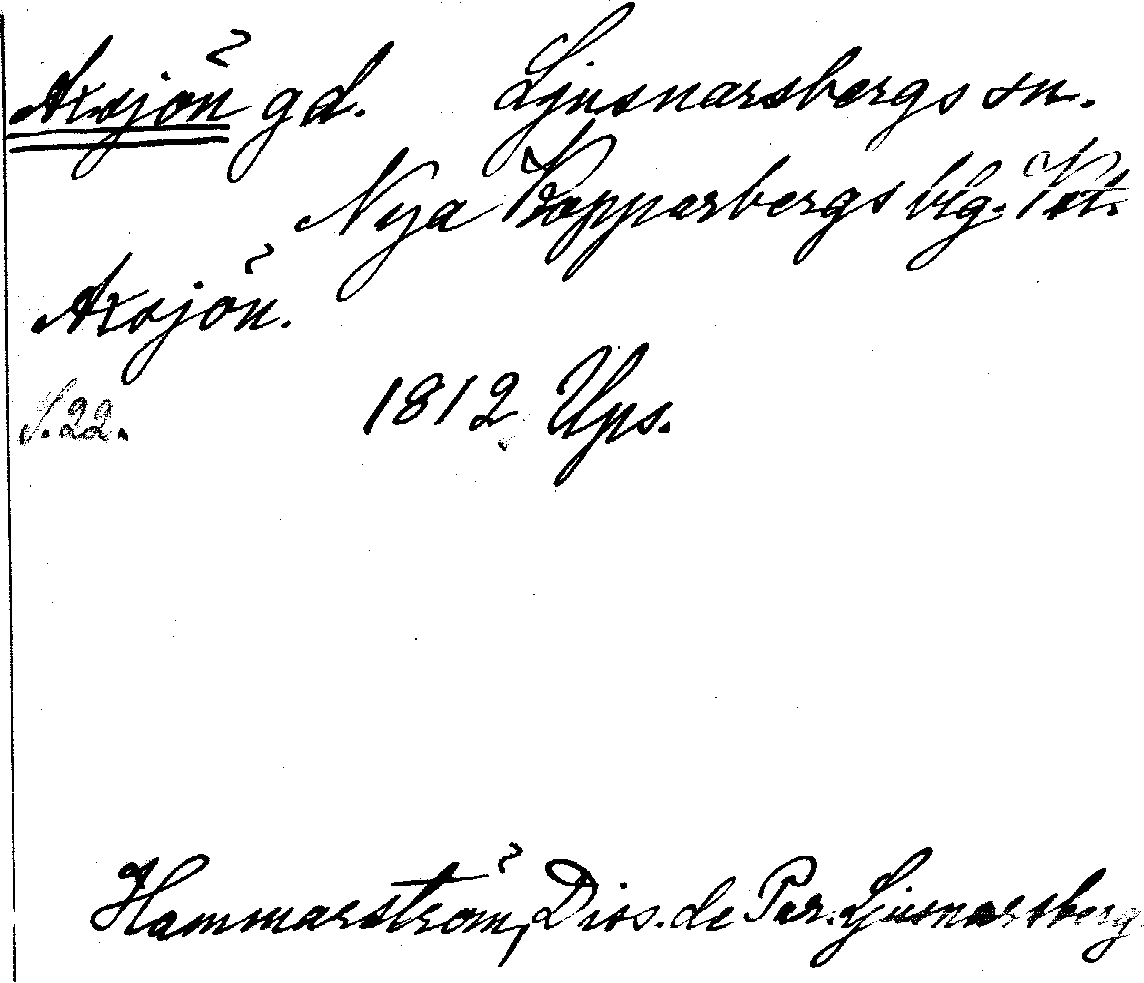 Axsjön gd. Ljusnarsbergs sn.
Nya Kopparbergs blg. Vstm.
Axsjön.
S. 22. 1812 Ups.
Hammarström, Diss. de Par. Ljusnarsberg